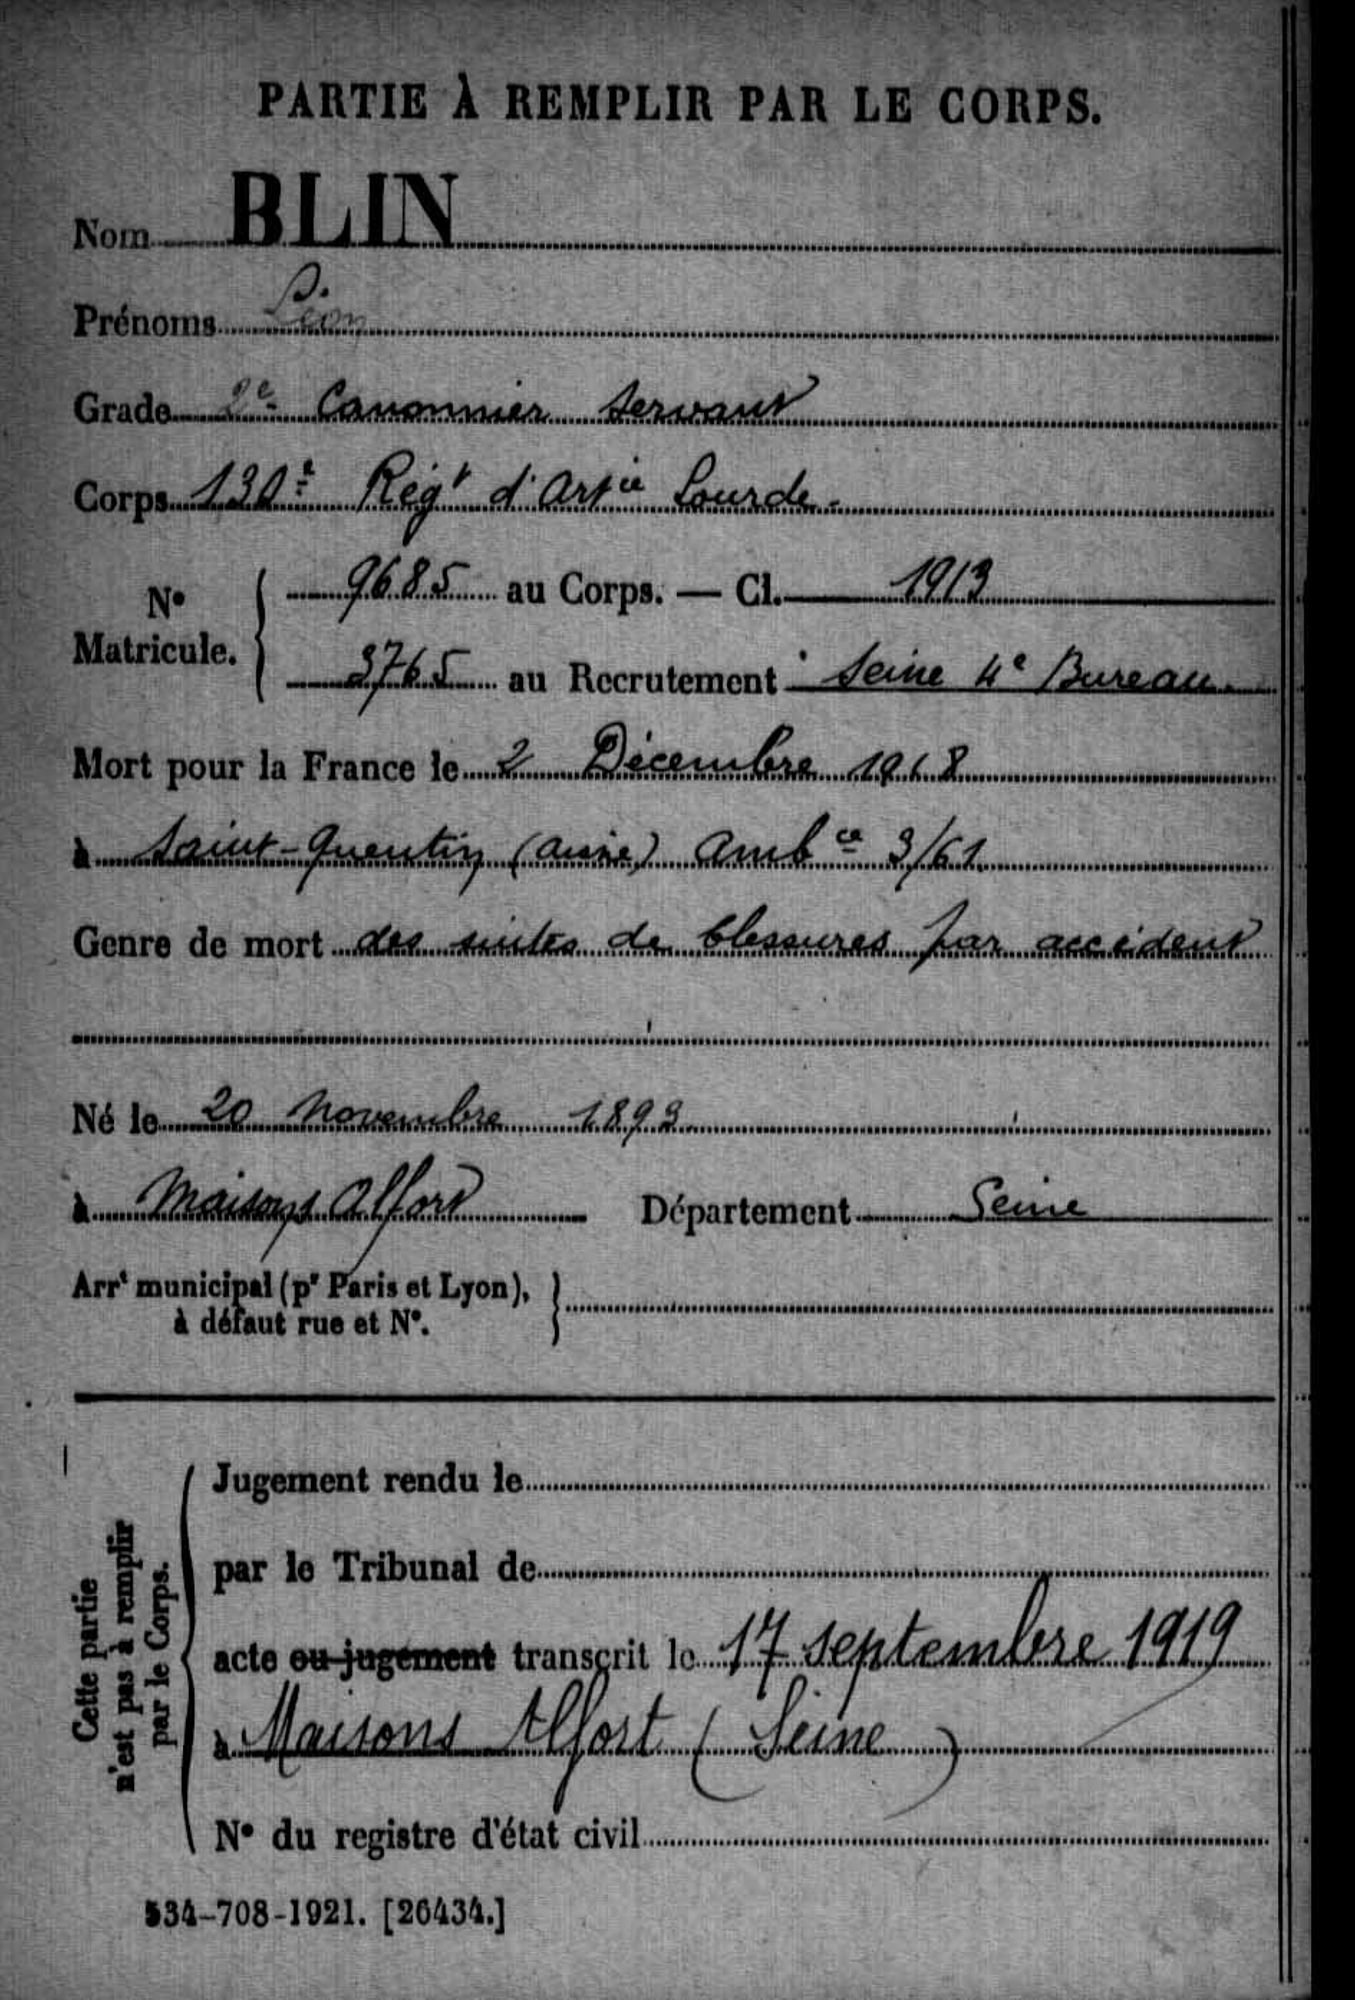 PARTIE À REMPLIR PAR LE CORPS.
Nom BLIN
Prénoms Léon
Grade 2e Canonnier servant
Corps 130e Régt d'Artie Lourde.
N° Matricule. 9685 au Corps. — Cl. 1913
3765 au Recrutement Seine 4e Bureau.
Mort pour la France le 2 Décembre 1918
à Saint-Quentin (Aisne) Ambce 3/61
Genre de mort des suites de blessures par accident
Né le 20 Novembre 1893
à Maisons Alfort Département Seine
Arrt municipal (pr Paris et Lyon),
à défaut rue et N°.
Cette partie
n'est pas à remplir
par le Corps.
Jugement rendu le
par le Tribunal de
acte ou jugement transcrit le 17 septembre 1919
à Maisons Alfort (Seine)
N° du registre d'état civil
534-708-1921. [26434.]